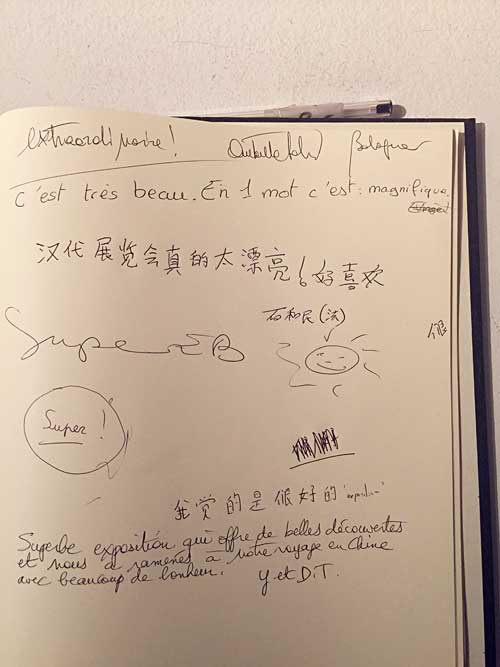 extraordinaire !
c'est très beau. En 1 mot c'est : magnifique.
汉代展览会真的太漂亮！好喜欢
石和民（法）
很
Super EB
Super !
我觉的是很好的 "exposition"
Superbe exposition qui offre de belles découvertes
et nous a ramenés à notre voyage en Chine
avec beaucoup de bonheur. Y et D.T.